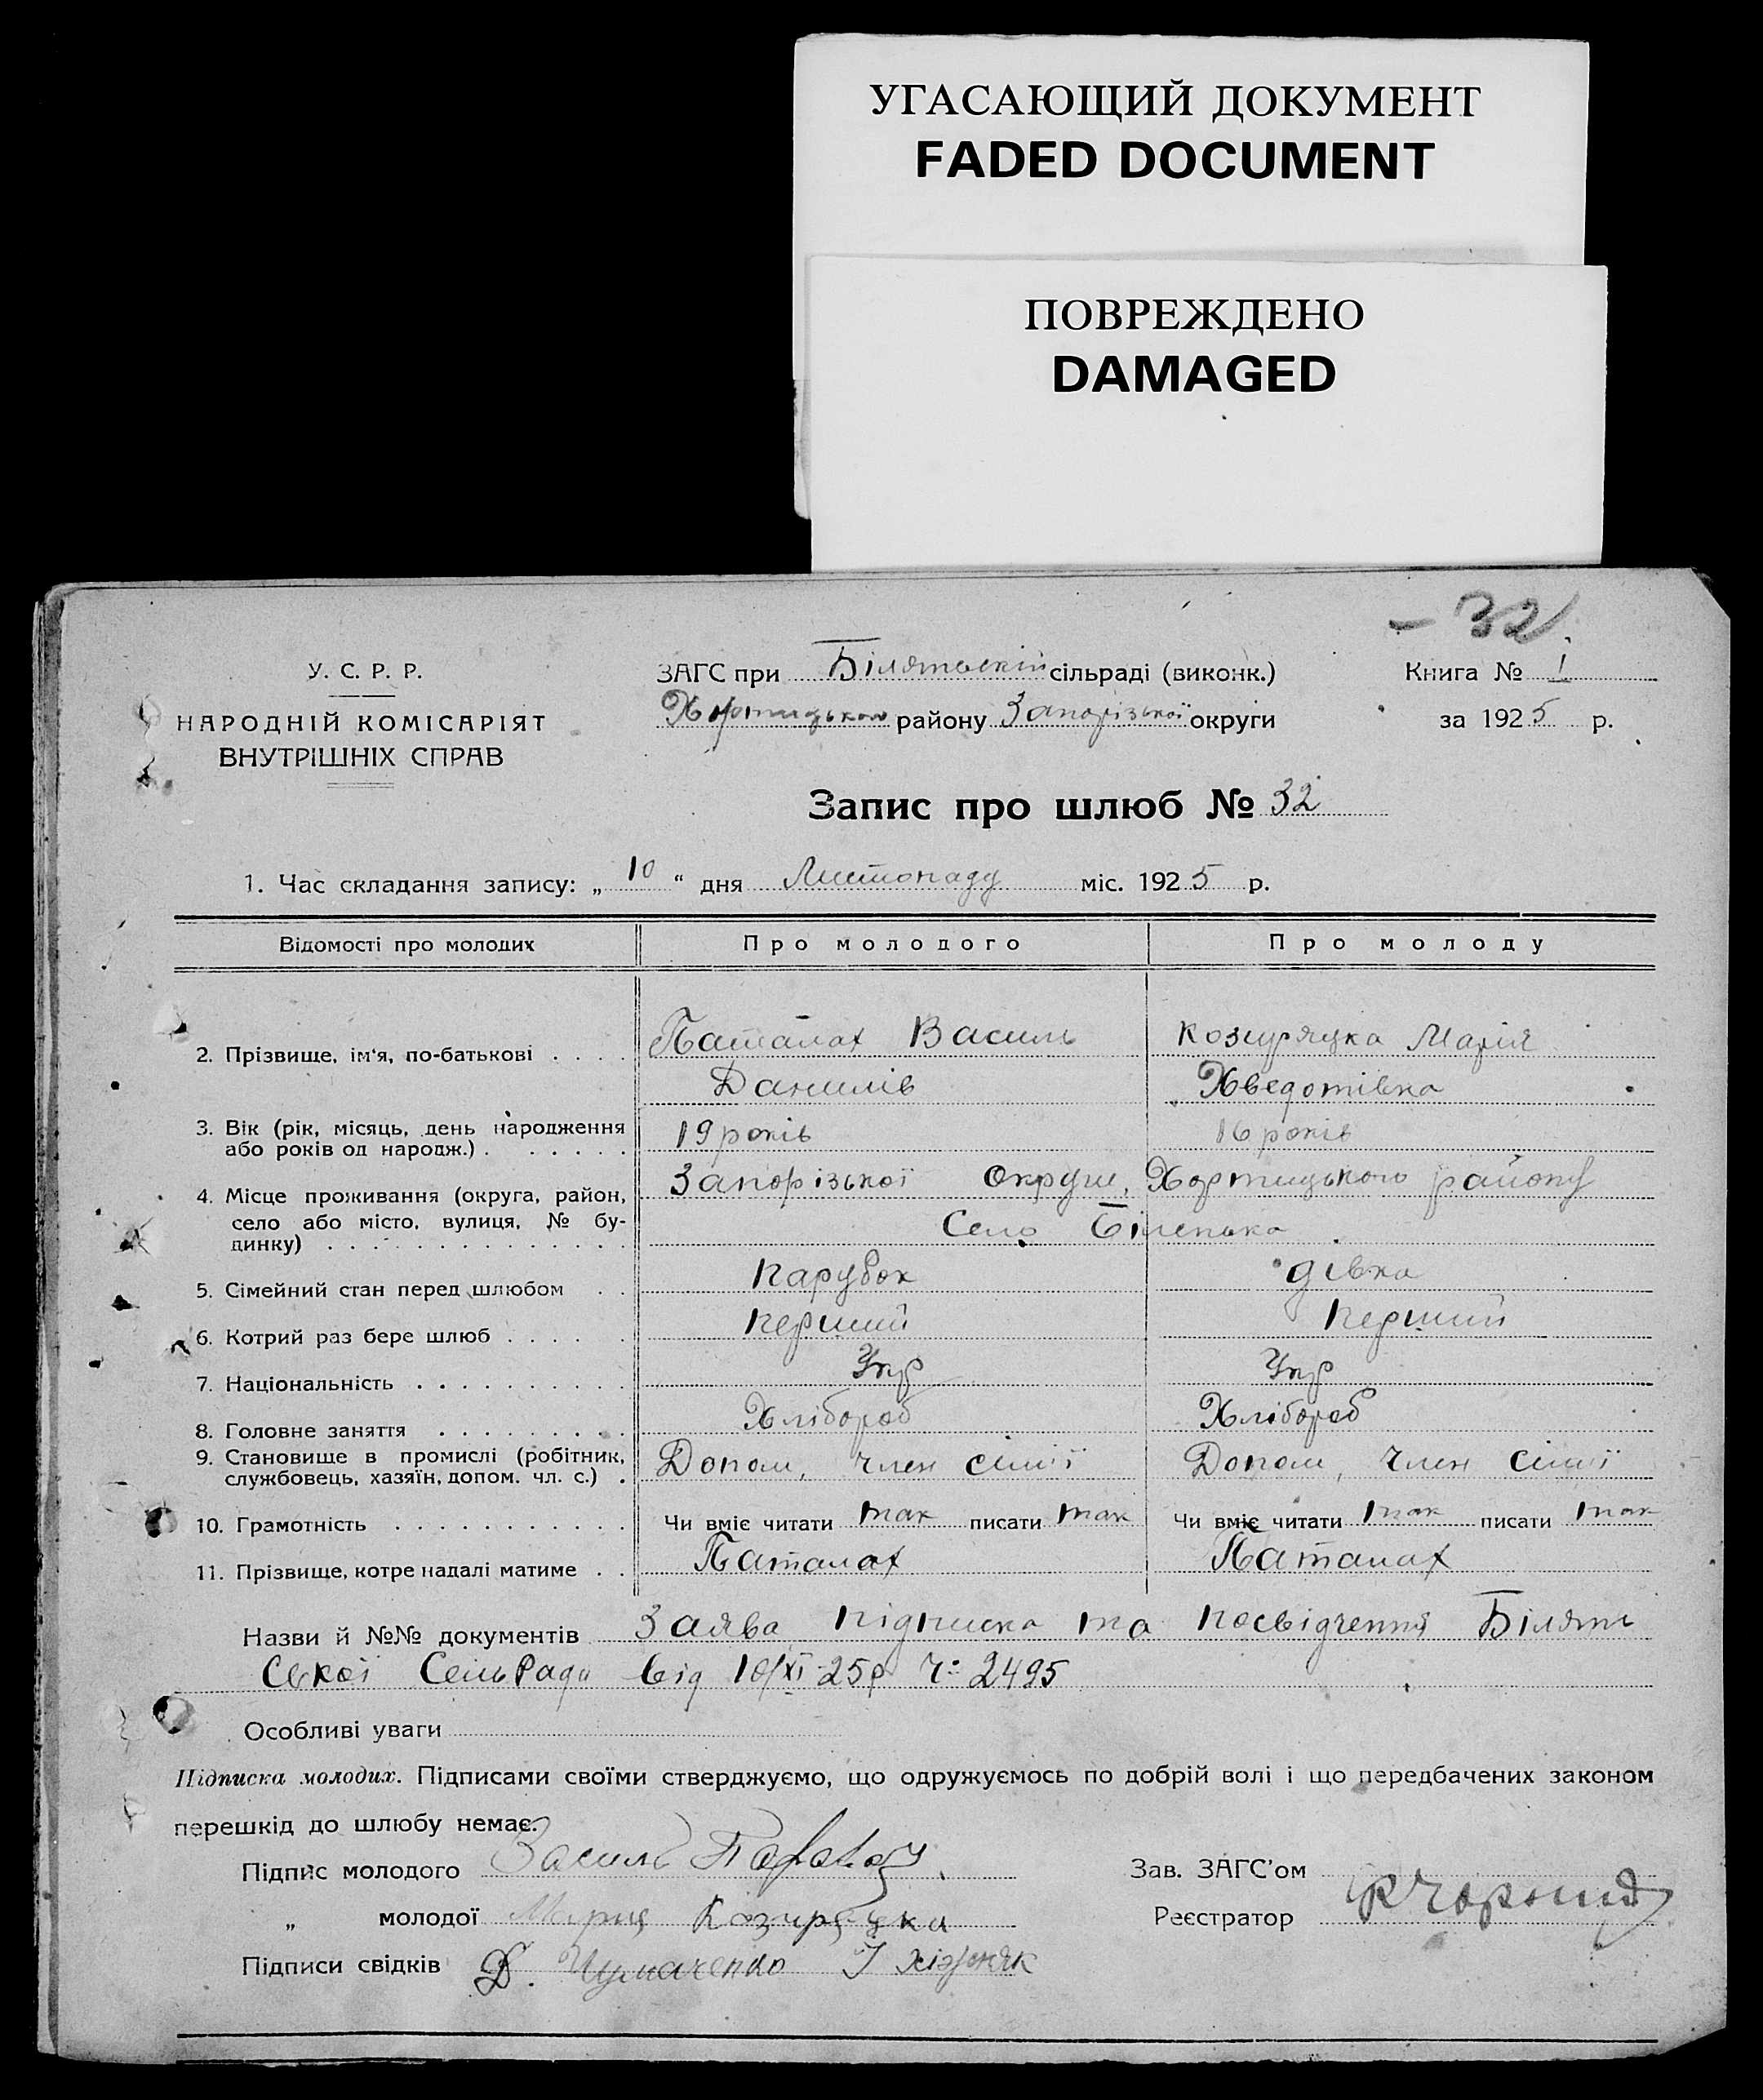 УГАСАЮЩИЙ ДОКУМЕНТ
FADED DOCUMENT
ПОВРЕЖДЕНО
DAMAGED
- 32
У. С. Р. Р.
НАРОДНІЙ КОМІСАРІЯТ
ВНУТРІШНІХ СПРАВ
ЗАГС при Білятьскій сільраді (виконк.)
Хортицького району Запорізької округи
Книга № І
за 1925 р.
Запис про шлюб № 32
1. Час складання запису: „ 10 “ дня Листопаду міс. 1925 р.
Відомості про молодих Про молодого Про молоду
2. Прізвище, ім'я, по-батькові . . . . Паталах Василь Козиряцка Марія
Данилів Хведотівна
3. Вік (рік, місяць, день народження
або років од народж.) . . . . . . 19 років 16 років
4. Місце проживання (округа, район,
село або місто, вулиця, № бу-
динку) . . . . . . . . . . . . . . Запорізької Округи, Хортицького району
Село Біленька
5. Сімейний стан перед шлюбом . . парубок дівка
6. Котрий раз бере шлюб . . . . . перший перший
7. Національність . . . . . . . . . . Укр Укр
8. Головне заняття . . . . . . . . . Хлібороб Хлібороб
9. Становище в промислі (робітник,
службовець, хазяїн, допом. чл. с.) . Допом, член сімії Допом, член сімії
10. Грамотність . . . . . . . . . . . Чи вміє читати так писати так Чи вміє читати так писати так
11. Прізвище, котре надалі матиме . . Паталах Паталах
Назви й №№ документів Заява підписка та посвідчення Білять
Ської СельРади від 10/XI-25р Ч: 2495
Особливі уваги
Підписка молодих. Підписами своїми стверджуємо, що одружуємось по добрій волі і що передбачених законом
перешкід до шлюбу немає.
Підпис молодого Василь
Зав. ЗАГС'ом
„ молодої Козиряцка
Реєстратор
Підписи свідків Д. Чумаченко І Хіжняк